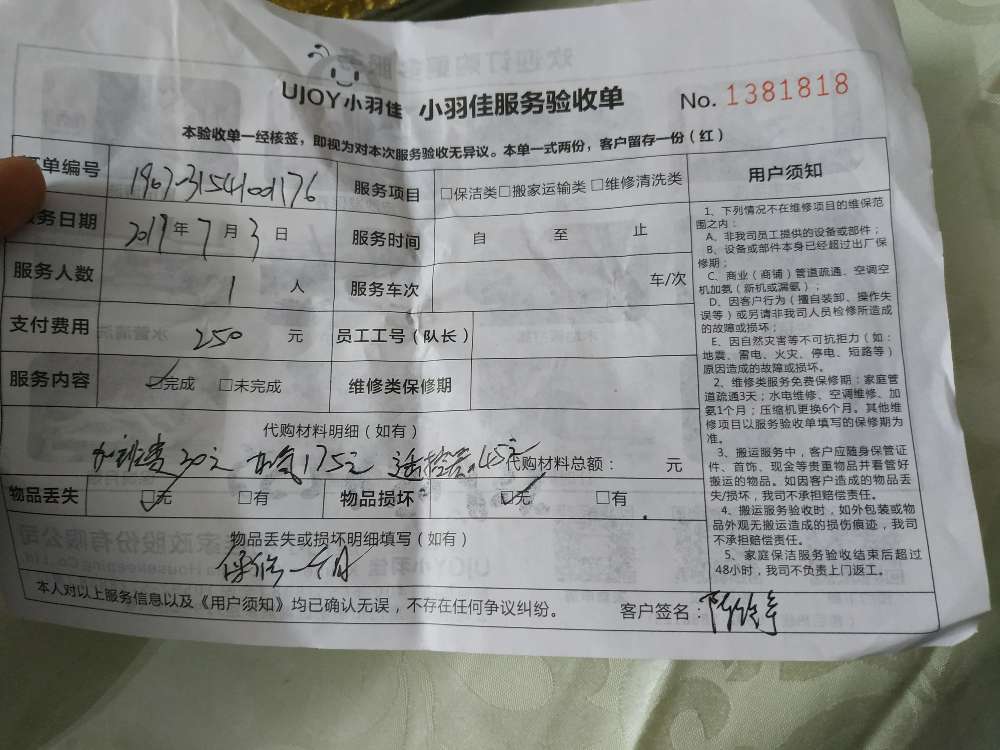 UJOY小羽佳 小羽佳服务验收单 No. 1381818
本验收单一经核签，即视为对本次服务验收无异议。本单一式两份，客户留存一份（红）
单编号 1907-31541001176 服务项目 □保洁类□搬家运输类□维修清洗类
务日期 2019年7月3日 服务时间 自 至 止
服务人数 1 人 服务车次 车/次
支付费用 250 元 员工工号（队长）
服务内容 ☑完成 □未完成 维修类保修期
代购材料明细（如有）
加班费30元 加氨175元 遥控器45元 代购材料总额： 元
物品丢失 ☑无 □有 物品损坏 ☑无 □有
物品丢失或损坏明细填写（如有）
保修一个月
本人对以上服务信息以及《用户须知》均已确认无误，不存在任何争议纠纷。 客户签名：
用户须知
1、下列情况不在维修项目的维保范
围之内：
A、非我司员工提供的设备或部件；
B、设备或部件本身已经超过出厂保
修期；
C、商业（商铺）管道疏通、空调空
机加氨（新机或漏氨）；
D、因客户行为（擅自装卸、操作失
误等）或另请非我司人员检修所造成
的故障或损坏；
E、因自然灾害等不可抗拒力（如：
地震、雷电、火灾、停电、短路等）
原因造成的故障或损坏。
2、维修类服务免费保修期：家庭管
道疏通3天；水电维修、空调维修、加
氨1个月；压缩机更换6个月。其他维
修项目以服务验收单填写的保修期为
准。
3、搬运服务中，客户应随身保管证
件、首饰、现金等贵重物品并看管好
搬运的物品。如因客户造成的物品丢
失/损坏，我司不承担赔偿责任。
4、搬运服务验收时，如外包装或物
品外观无搬运造成的损伤痕迹，我司
不承担赔偿责任。
5、家庭保洁服务验收结束后超过
48小时，我司不负责上门返工。